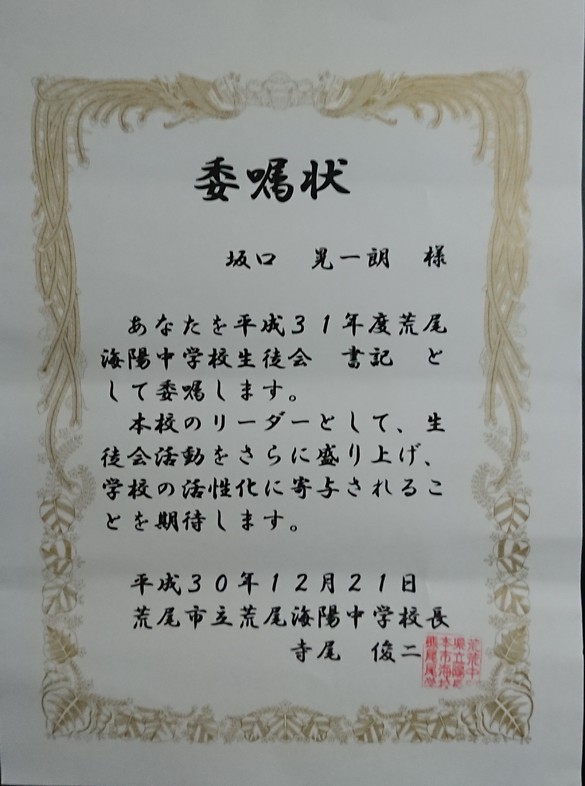 委嘱状
坂口　晃一朗　様
あなたを平成３１年度荒尾
海陽中学校生徒会　書記　と
して委嘱します。
本校のリーダーとして、生
徒会活動をさらに盛り上げ、
学校の活性化に寄与されるこ
とを期待します。
平成３０年１２月２１日
荒尾市立荒尾海陽中学校長
寺尾　俊二